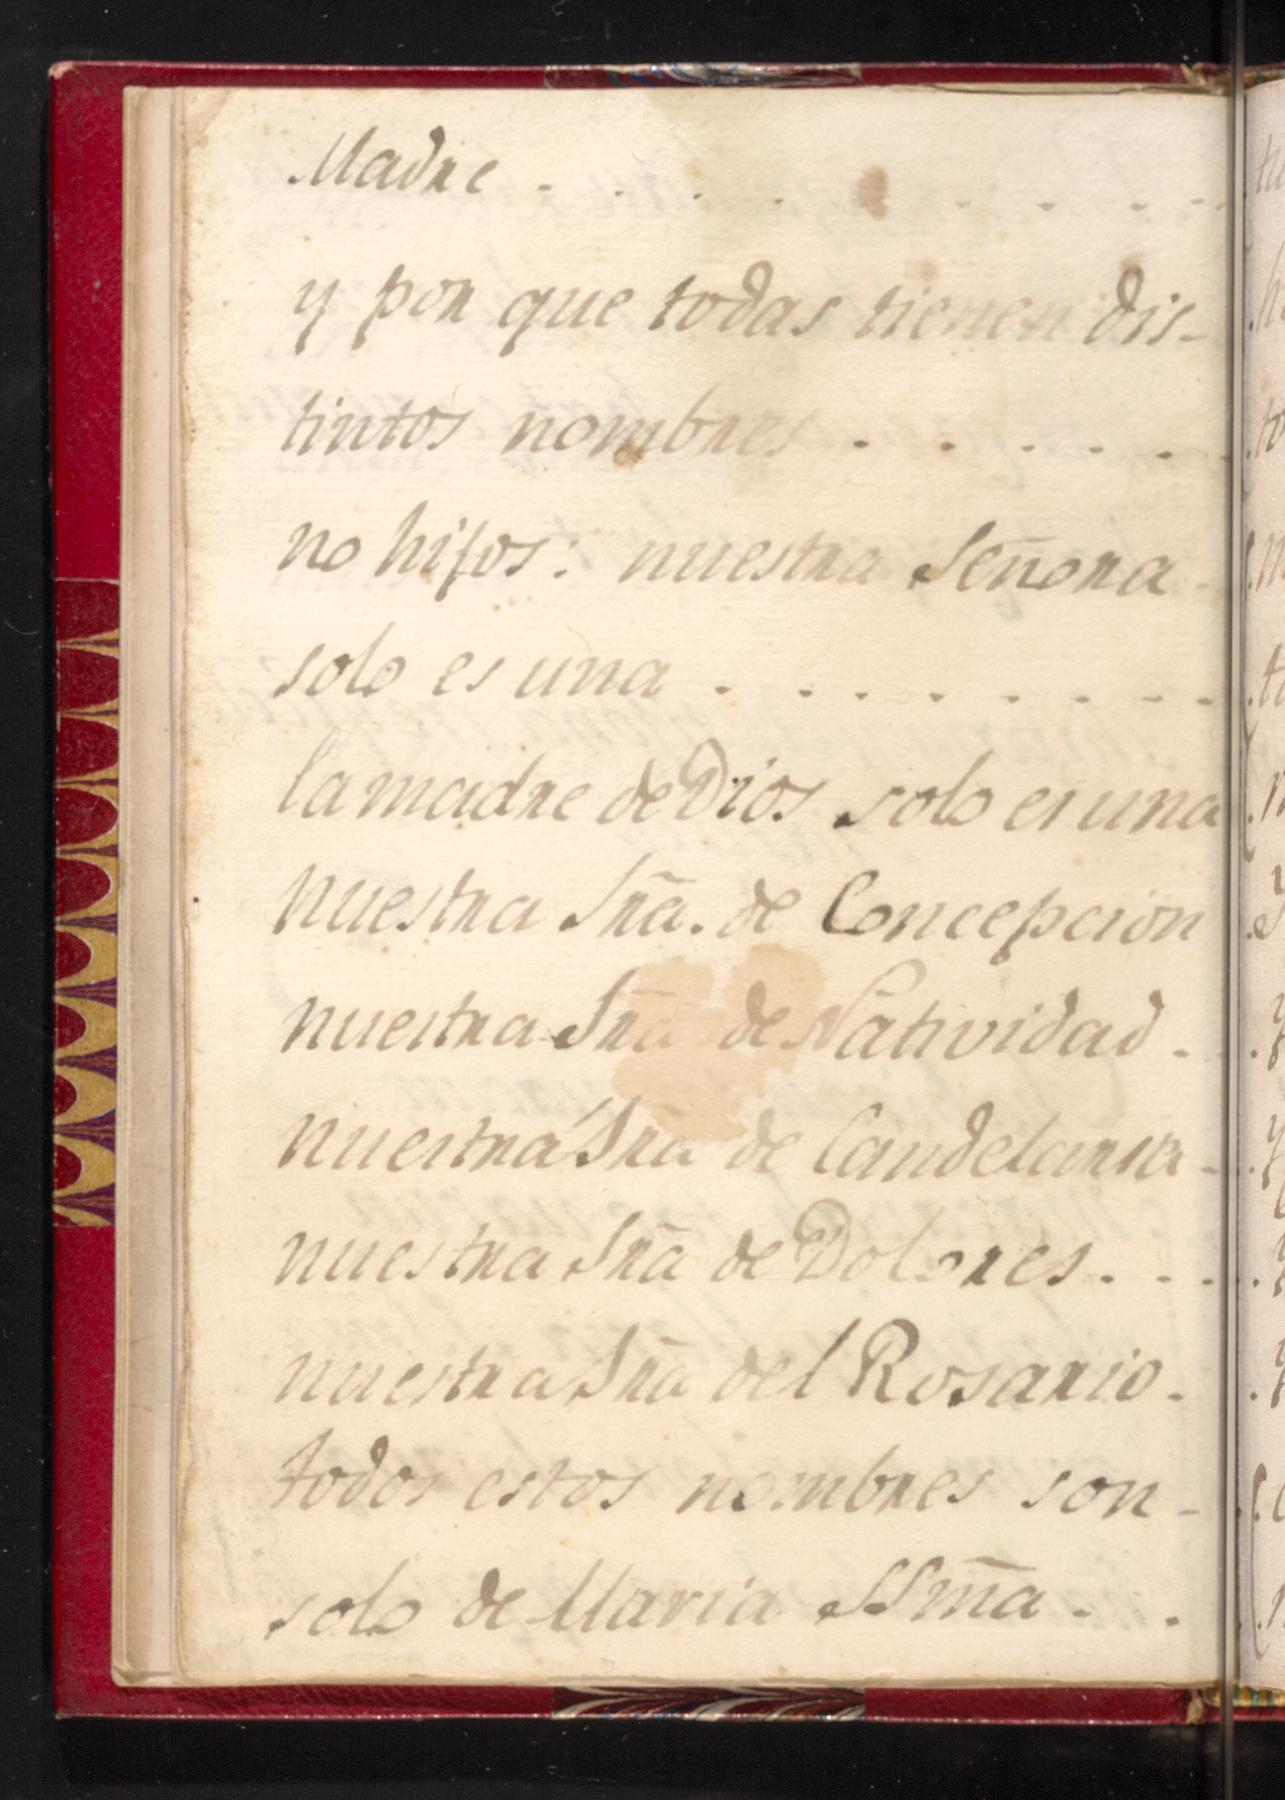 Madre - . . . . . . . -
y por que todas tienen dis-
tintos nombres . . . . . .
no hijos: nuestra Señora
solo es una . . . . . . . . .
la madre de Dios solo es una
nuestra Srã. de Concepcion
nuestra Srã de Natividad . .
nuestra Srã de Candelaria -
nuestra Srã de Dolores . . .
nuestra Srã del Rosario .
todos estos nombres son -
solo de Maria SSm̃a . .